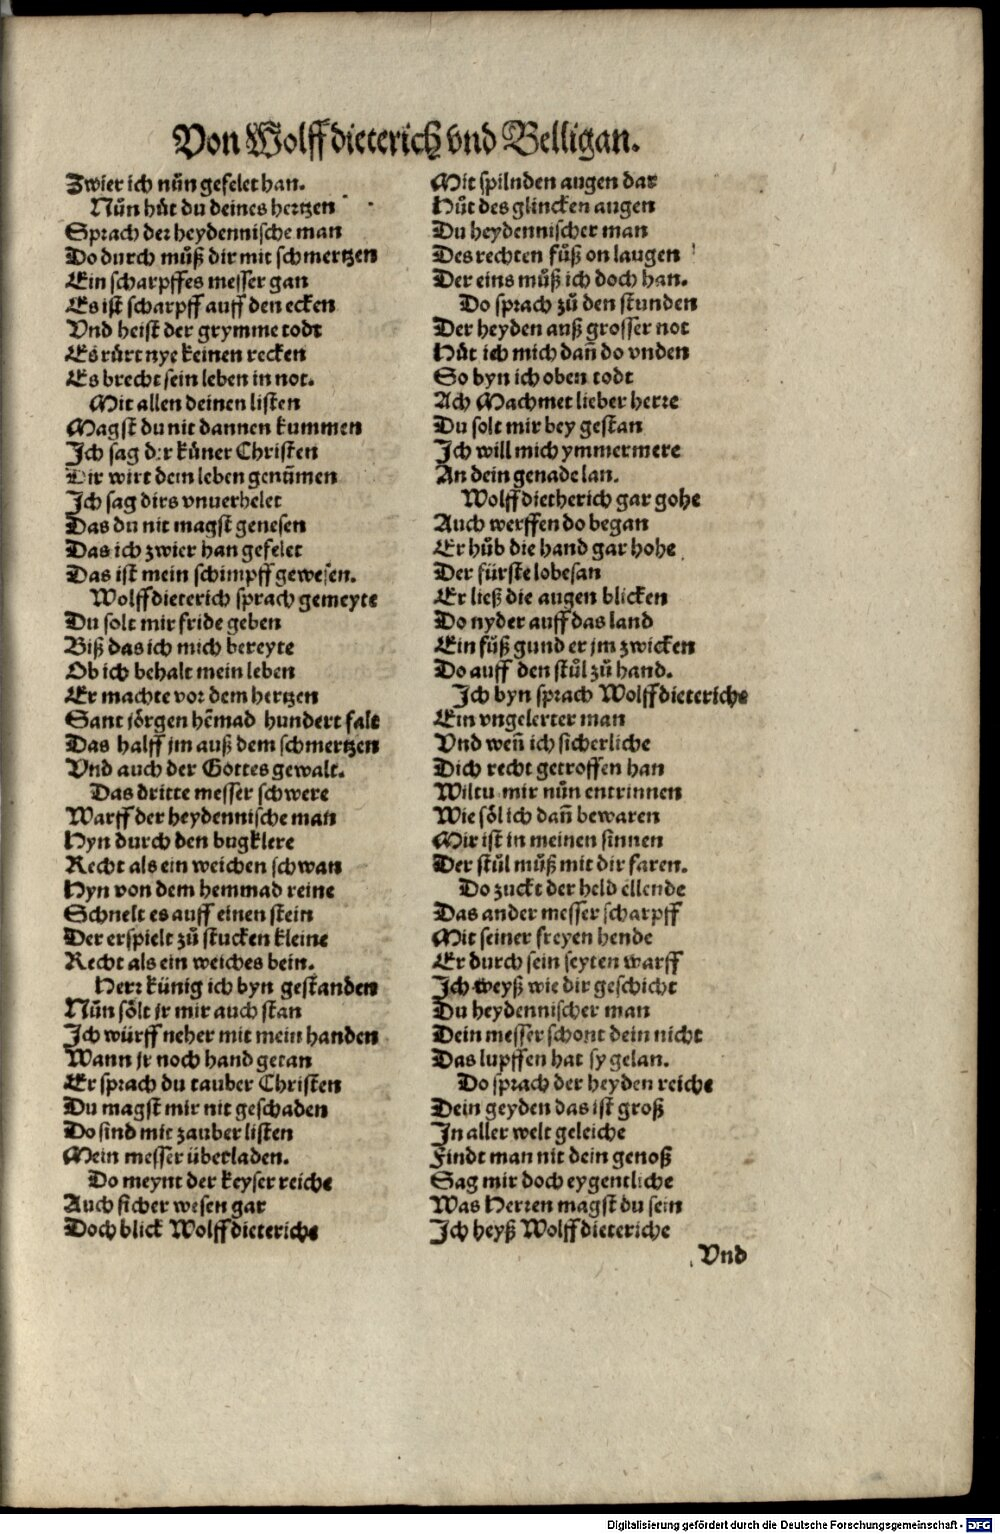 Von Wolffdieterich vnd Belligan.
Zwier ich nůn gefelet han.
Nůn hůt du deines hertzen
Sprach der heydennische man
Do durch můß dir mit schmertzen
Ein scharpffes messer gan
Es ist scharpff auff den ecken
Vnd heist der grymme todt
Es růrt nye keinen recken
Es brecht sein leben in not.
Mit allen deinen listen
Magst du nit dannen kummen
Ich sag dir küner Christen
Dir wirt dein leben genům̄en
Ich sag dirs vnuerhelet
Das du nit magst genesen
Das ich zwier han gefelet
Das ist mein schimpff gewesen.
Wolffdieterich sprach gemeyte
Du solt mir fride geben
Biß das ich mich bereyte
Ob ich behalt mein leben
Er machte vor dem hertzen
Sant jörgen hēmad hundert falt
Das halff jm auß dem schmertzen
Vnd auch der Gottes gewalt.
Das dritte messer schwere
Warff der heydennische man
Hyn durch den bugklere
Recht als ein weichen schwan
Hyn von dem hemmad reine
Schnelt es auff einen stein
Der erspielt zů stucken kleine
Recht als ein weiches bein.
Herr künig ich byn gestanden
Nůn sölt jr mir auch stan
Ich würff neher mit mein handen
Wann jr noch hand getan
Er sprach du tauber Christen
Du magst mir nit geschaden
Do sind mit zauber listen
Mein messer überladen.
Do meynt der keyser reiche
Auch sicher wesen gar
Doch blick Wolffdieteriche
Mit spilnden augen dar
Hůt des glincken augen
Du heydennischer man
Des rechten fůß on laugen
Der eins můß ich doch han.
Do sprach zů den stunden
Der heyden auß grosser not
Hůt ich mich dañ do vnden
So byn ich oben todt
Ach Machmet lieber herre
Du solt mir bey gestan
Ich will mich ymmermere
An dein genade lan.
Wolffdietherich gar gohe
Auch werffen do began
Er hůb die hand gar hohe
Der fürste lobesan
Er ließ die augen blicken
Do nyder auff das land
Ein fůß gund er jm zwicken
Do auff den stůl zů hand.
Ich byn sprach Wolffdieteriche
Ein vngelerter man
Vnd weñ ich sicherliche
Dich recht getroffen han
Wiltu mir nůn entrinnen
Wie söl ich dañ bewaren
Mir ist in meinen sinnen
Der stůl můß mit dir faren.
Do zuckt der held ellende
Das ander messer scharpff
Mit seiner freyen hende
Er durch sein seyten warff
Ich weyß wie dir geschicht
Du heydennischer man
Dein messer schont dein nicht
Das lupffen hat sy gelan.
Do sprach der heyden reiche
Dein geyden das ist groß
In aller welt geleiche
Findt man nit dein genoß
Sag mir doch eygentliche
Was Herren magst du sein
Ich heyß Wolffdieteriche
Vnd
Digitalisierung gefördert durch die Deutsche Forschungsgemeinschaft - DFG